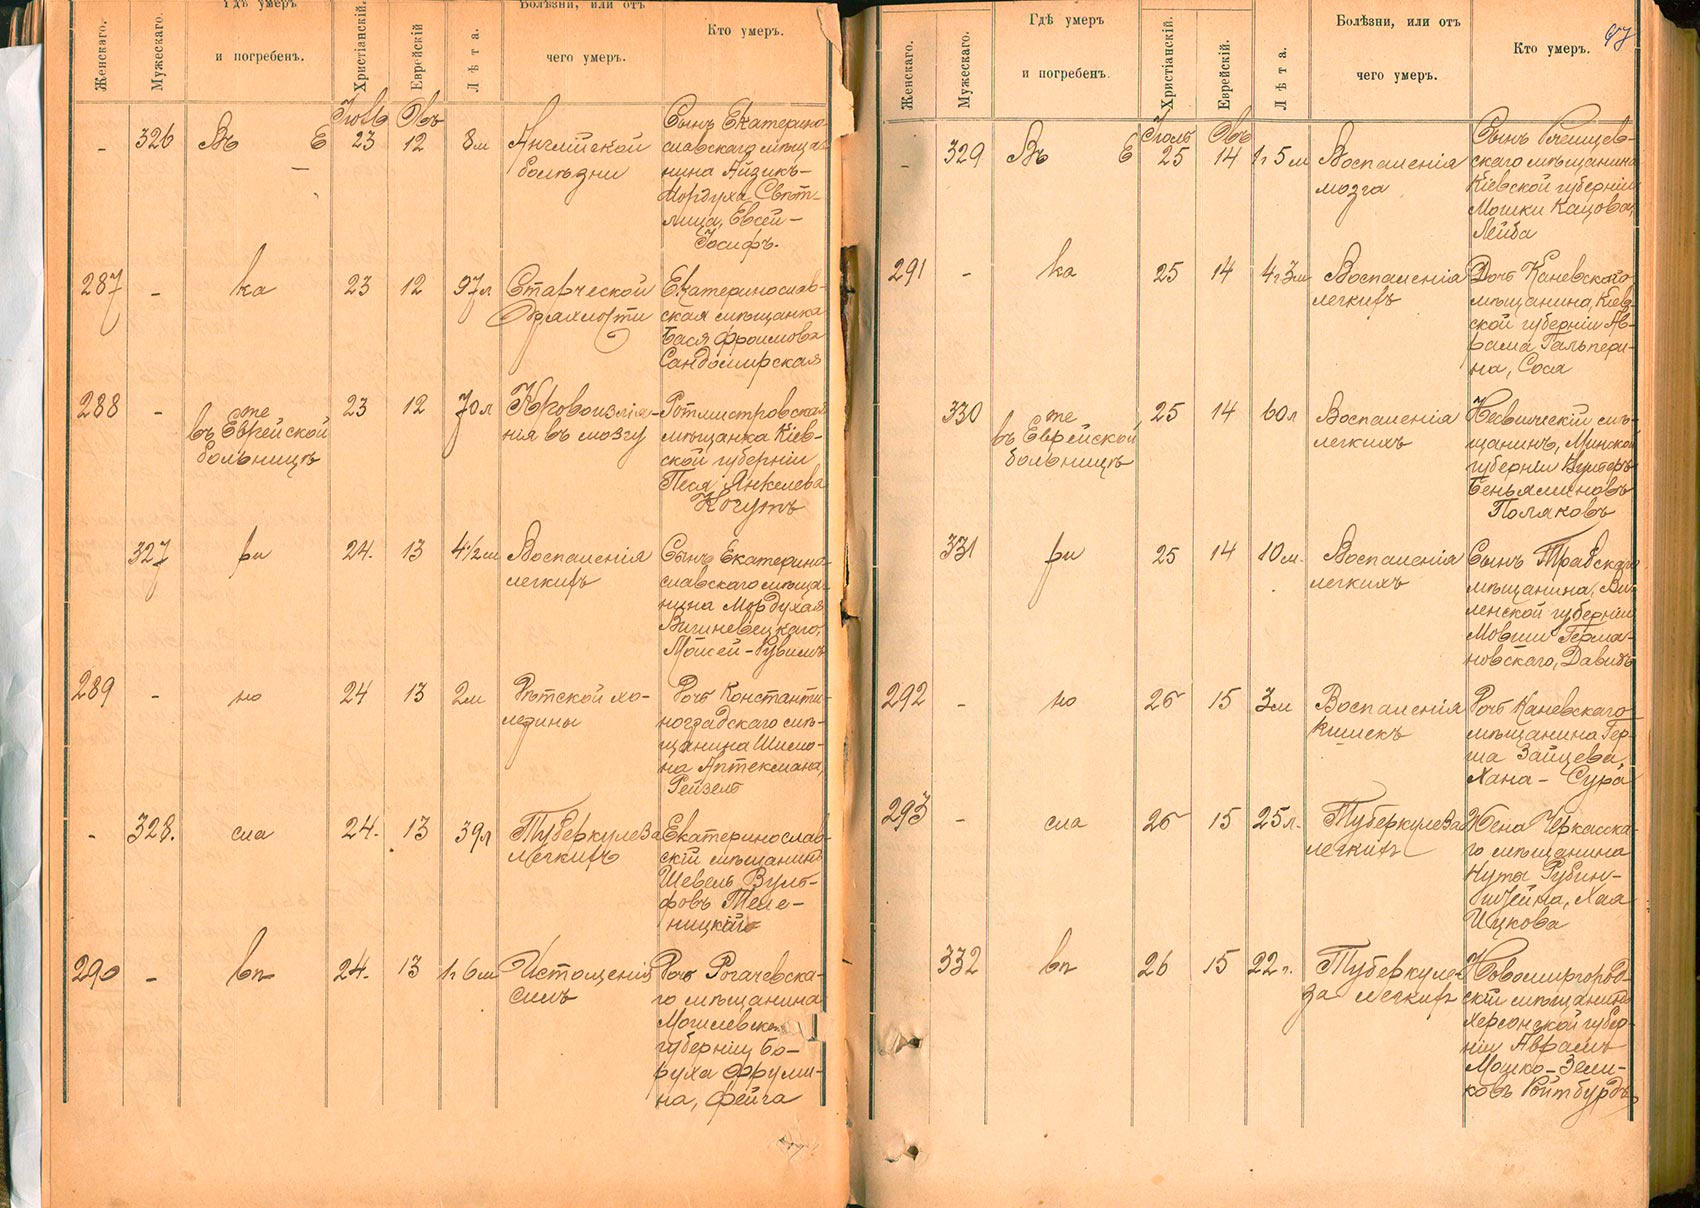 Женскаго.
Мужескаго.
Гдѣ умеръ
и погребенъ.
Христіанскій.
Еврейскій
Лѣта.
Болѣзни, или отъ
чего умеръ.
Кто умеръ.
Іюль
-
326
Въ Е
23
12
8м
Англійской
болѣзни
Сынъ Екатерино-
славскаго мѣща-
нина Айзикъ-
Мордуха Свѣт-
лица, Евсей-
Іосифъ.
287
-
ка
23
12
97л
Старческой
дряхлости
Екатеринослав-
ская мѣщанка
Бася Фроимова
Сандомирская
288
-
те
въ Еврейской
больницѣ
23
12
70л
Кровоизлія-
нія въ мозгу
Ротмистровская
мѣщанка Кіев-
ской губерніи
Песя Янкелева
Когутъ
327
ри
24.
13
4½м
Воспаленія
легкихъ
Сынъ Екатерино-
славскаго мѣща-
нина Мордухая
Вишневецкаго,
Мойсей-Рувимъ
289
-
но
24
13
2м
Дѣтской хо-
лерины
Дочь Константи-
ноградскаго мѣ-
щанина Шимо-
на Аптекмана,
Рейзель
-
328.
сла
24.
13
39л
Туберкулеза
легкихъ
Екатеринослав-
скій мѣщанинъ
Шевель Вуль-
фовъ Теле-
ницкій
290
-
вп
24.
13
1г 6м
Истощенія
силъ
Дочь Рогачевска-
го мѣщанина
Могилевской
губерніи Бо-
руха Фруми-
на, Фейга
Женскаго.
Мужескаго.
Гдѣ умеръ
и погребенъ.
Христіанскій.
Еврейскій.
Лѣта.
Болѣзни, или отъ
чего умеръ.
Кто умеръ.
Іюль
-
329
Въ Е
25
14
1г 5м
Воспаленія
мозга
Сынъ
скаго мѣщанина
Кіевской губерніи
Мошки Кацова,
Лейба
291
-
ка
25
14
4г 3м
Воспаленія
легкихъ
Дочь Каневскаго
мѣщанина, Кіев-
ской губерніи Ав-
рама Гальпери-
на, Сося
330
те
въ Еврейской
больницѣ
25
14
60л
Воспаленія
легкихъ
Несвижскій мѣ-
щанинъ, Минской
губерніи
Беньяминовъ
Поляковъ
331
ри
25
14
10м.
Воспаленія
легкихъ
Сынъ Трабскаго
мѣщанина, Ви-
ленской губерніи
Мовши Герма-
новскаго, Давидъ
292
-
но
26
15
3м
Воспаленія
кишекъ
Дочь Каневскаго
мѣщанина Гер-
ша Зайцева
Хана - Сура
293
-
сла
26
15
25л.
Туберкулеза
легкихъ
Жена Черкасска-
го мѣщанина
Нута Рубин-
штейна, Хая
Ицкова
332
вп
26
15
22г.
Туберкуле-
за легкихъ
Новомиргород-
скій мѣщанинъ
Херсонской губер-
ніи Аврамъ
Мошко-Зели-
ковъ Ройтбурдъ